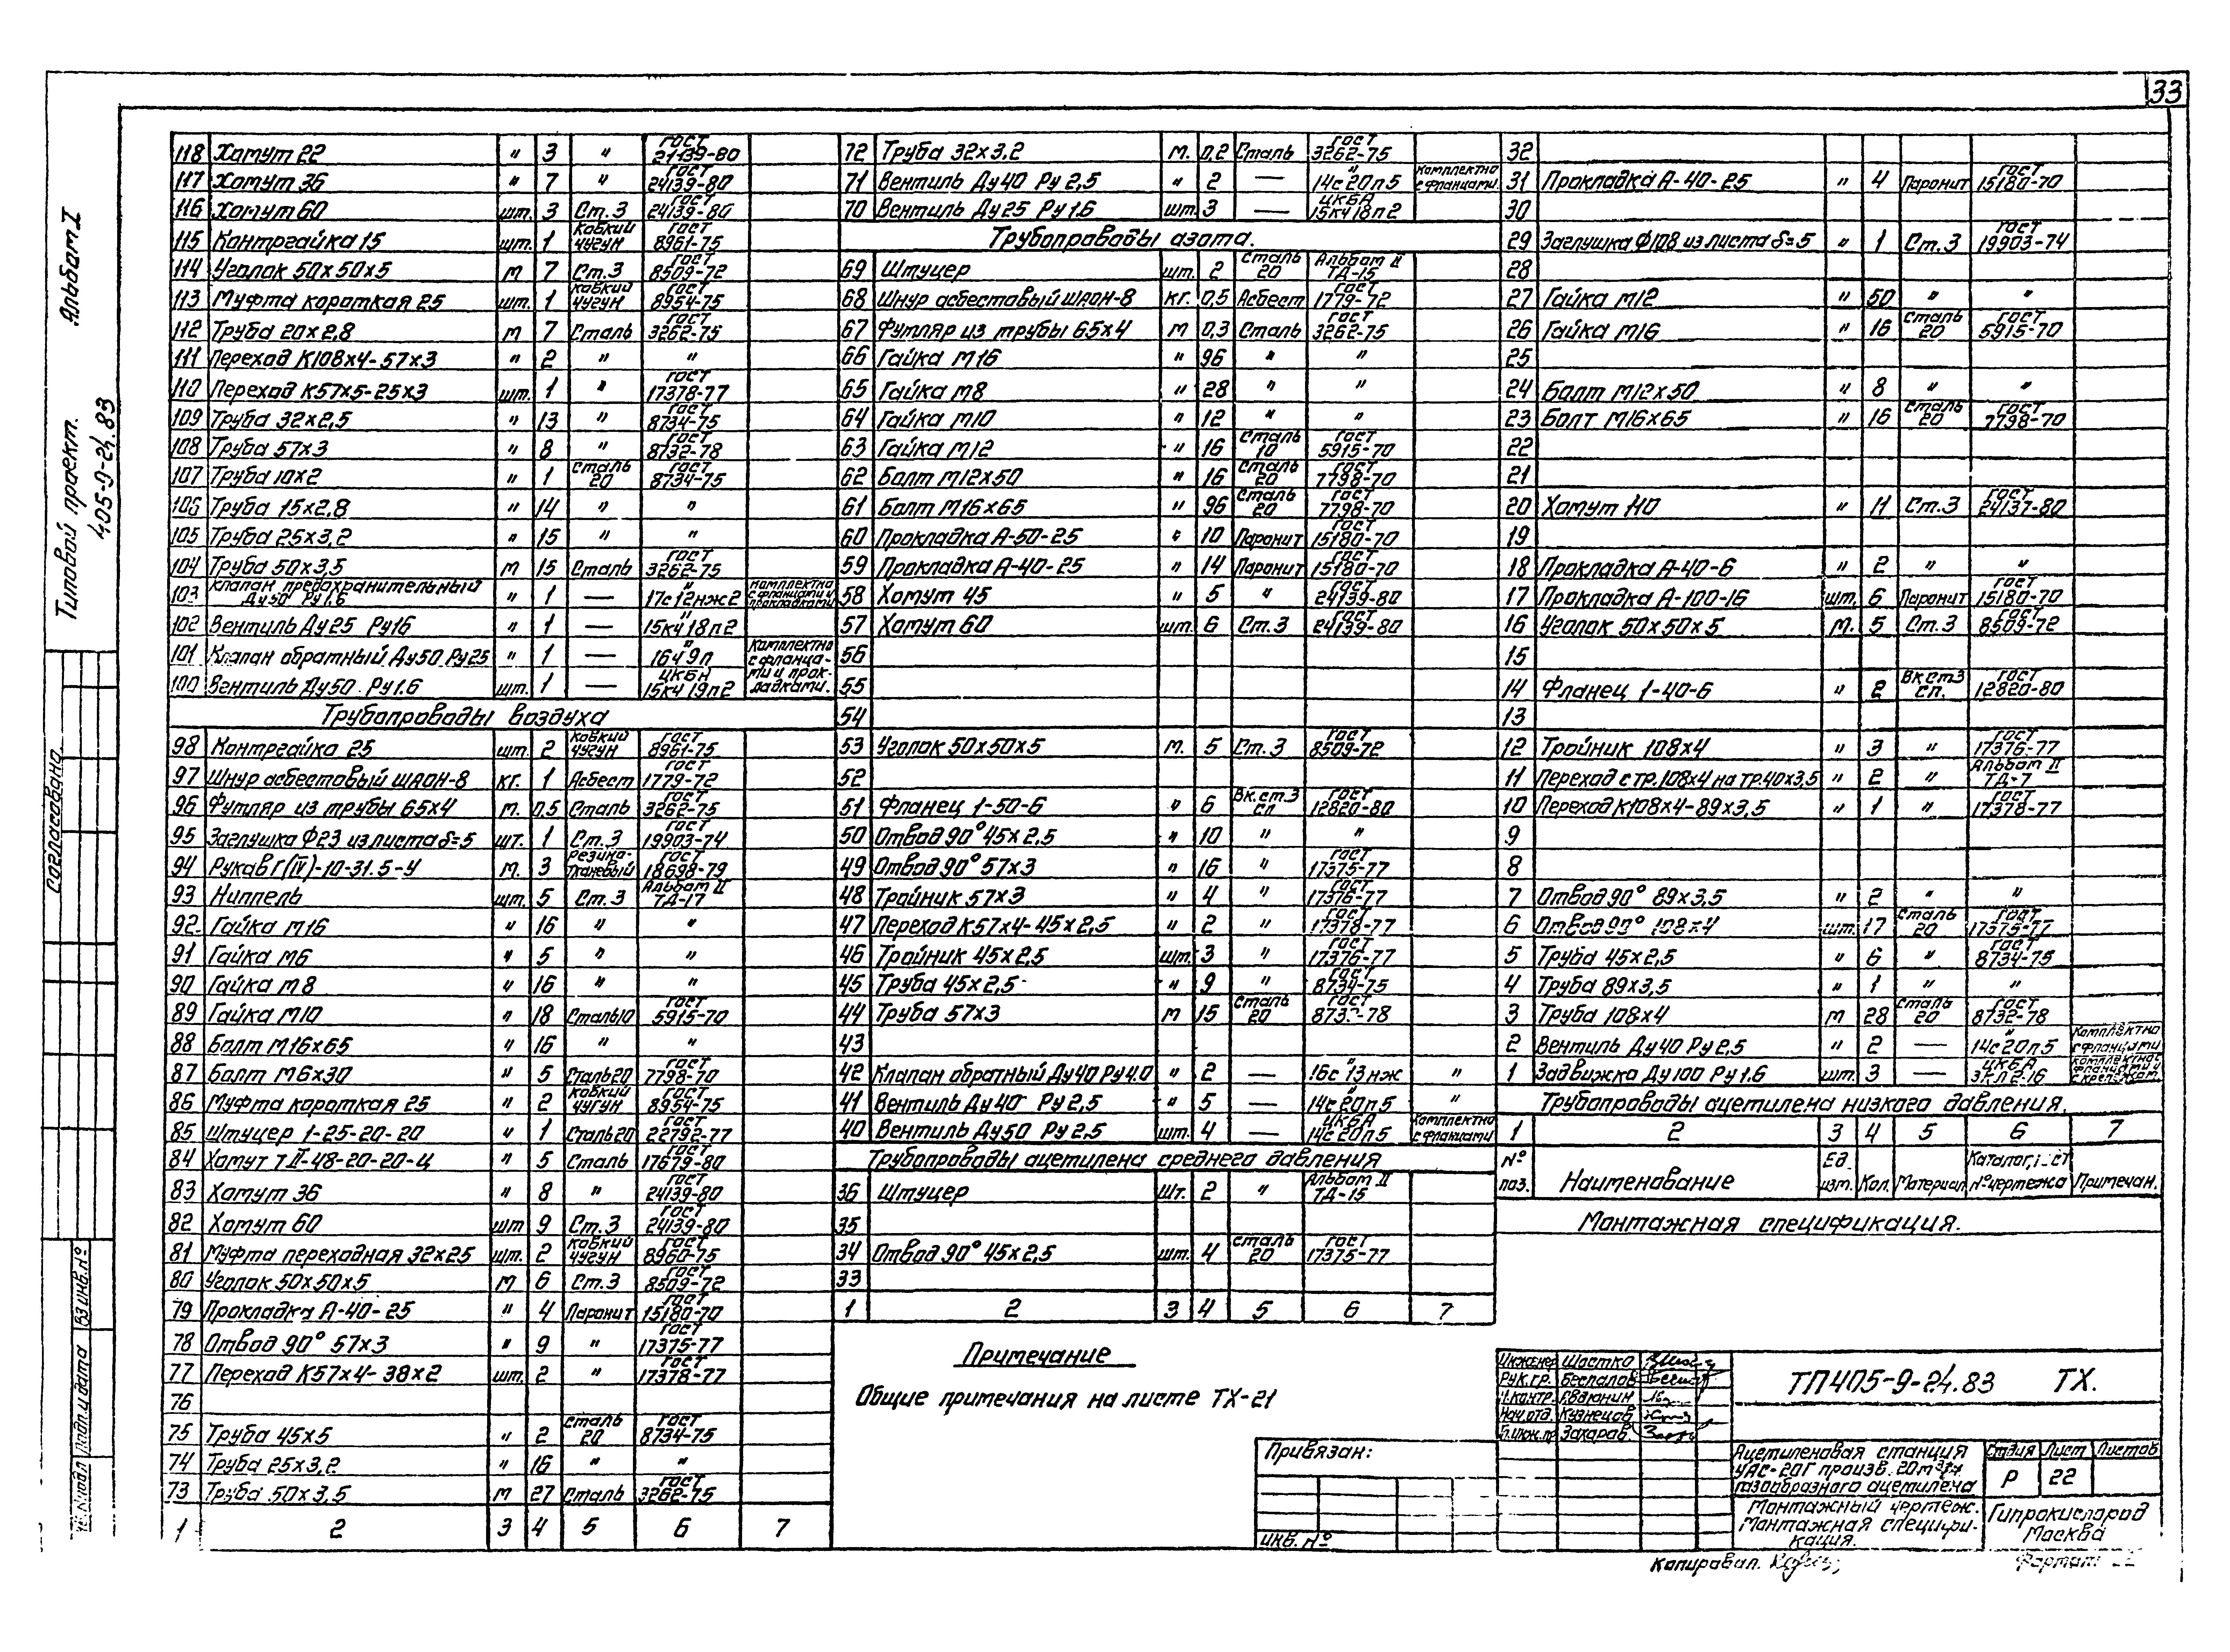 33
Альбом I
Типовой проект.
405-9-24.83
Согласовано
Взинв.№
Подп.и дата
118 Хомут 22 " 3 " ГОСТ 24139-80
117 Хомут 36 " 7 " ГОСТ 24139-80
116 Хомут 60 шт. 3 Ст.3 ГОСТ 24139-80
115 Контргайка 15 шт. 1 Ковкий чугун ГОСТ 8961-75
114 Уголок 50x50x5 м 7 Ст.3 ГОСТ 8509-72
113 Муфта короткая 25 шт. 1 Ковкий чугун ГОСТ 8954-75
112 Труба 20x2,8 м 7 Сталь ГОСТ 3262-75
111 Переход К108x4-57x3 " 2 " "
110 Переход К57x5-25x3 шт. 1 " ГОСТ 17378-77
109 Труба 32x2,5 " 13 " ГОСТ 8734-75
108 Труба 57x3 " 8 " ГОСТ 8732-78
107 Труба 10x2 " 1 Сталь 20 ГОСТ 8734-75
106 Труба 15x2,8 " 14 " "
105 Труба 25x3,2 " 15 " "
104 Труба 50x3,5 м 15 Сталь ГОСТ 3262-75
103 Клапан предохранительный Ду50 Ру1,6 " 1 — " 17с12нж2 комплектно с фланцами и прокладками
102 Вентиль Ду25 Ру16 " 1 — " 15кч18п2
101 Клапан обратный Ду50 Ру25 " 1 — " 16ч9п Комплектно с фланца-
100 Вентиль Ду50 Ру1.6 шт. 1 — ЦКБА 15кч19п2 ми и прок-ладками.
Трубопроводы воздуха
98 Контргайка 25 шт. 2 Ковкий чугун ГОСТ 8961-75
97 Шнур асбестовый ШАОН-8 кг. 1 Асбест ГОСТ 1779-72
96 Футляр из трубы 65x4 м. 0,5 Сталь ГОСТ 3262-75
95 Заглушка Ф23 из листа δ=5 шт. 1 Ст.3 ГОСТ 19903-74
94 Рукав Г(IV)-10-31.5-У м. 3 Резино-тканевый ГОСТ 18698-79
93 Ниппель шт. 5 Ст.3 Альбом II ТД-17
92 Гайка М16 " 16 " "
91 Гайка М6 " 5 " "
90 Гайка М8 " 16 " "
89 Гайка М10 " 18 Сталь10 ГОСТ 5915-70
88 Болт М16x65 " 16 " "
87 Болт М6x30 " 5 Сталь20 ГОСТ 7798-70
86 Муфта короткая 25 " 2 Ковкий чугун ГОСТ 8954-75
85 Штуцер 1-25-20-20 " 1 Сталь20 ГОСТ 22792-77
84 Хомут ТII-48-20-20-ц " 5 Сталь ГОСТ 17679-80
83 Хомут 36 " 8 " ГОСТ 24139-80
82 Хомут 60 шт 9 Ст.3 ГОСТ 24139-80
81 Муфта переходная 32x25 шт. 2 Ковкий чугун ГОСТ 8960-75
80 Уголок 50x50x5 м 6 Ст.3 ГОСТ 8509-72
79 Прокладка А-40-25 " 4 Паронит ГОСТ 15180-70
78 Отвод 90° 57x3 " 9 " ГОСТ 17375-77
77 Переход К57x4-38x2 шт. 2 " ГОСТ 17378-77
76
75 Труба 45x5 " 2 Сталь 20 ГОСТ 8734-75
74 Труба 25x3,2 " 16 " "
73 Труба 50x3,5 м 27 Сталь ГОСТ 3262-75
1 2 3 4 5 6 7
72 Труба 32x3,2 м. 0,2 Сталь ГОСТ 3262-75
71 Вентиль Ду40 Ру2,5 " 2 — " 14с20п5 комплектно с фланцами.
70 Вентиль Ду25 Ру1.6 шт. 3 — ЦКБА 15кч18п2
Трубопроводы азота.
69 Штуцер шт. 2 Сталь 20 Альбом II ТД-15
68 Шнур асбестовый ШАОН-8 кг. 0,5 Асбест ГОСТ 1779-72
67 Футляр из трубы 65x4 м 0,3 Сталь ГОСТ 3262-75
66 Гайка М16 " 96 " "
65 Гайка М8 " 28 " "
64 Гайка М10 " 12 " "
63 Гайка М12 " 16 Сталь 10 ГОСТ 5915-70
62 Болт М12x50 " 16 Сталь 20 ГОСТ 7798-70
61 Болт М16x65 " 96 Сталь 20 ГОСТ 7798-70
60 Прокладка А-50-25 " 10 Паронит ГОСТ 15180-70
59 Прокладка А-40-25 " 14 Паронит ГОСТ 15180-70
58 Хомут 45 " 5 " ГОСТ 24139-80
57 Хомут 60 шт. 6 Ст.3 ГОСТ 24139-80
56
55
54
53 Уголок 50x50x5 м. 5 Ст.3 ГОСТ 8509-72
52
51 Фланец 1-50-6 " 6 Вк.ст.3 сп ГОСТ 12820-80
50 Отвод 90° 45x2,5 " 10 " "
49 Отвод 90° 57x3 " 16 " ГОСТ 17375-77
48 Тройник 57x3 " 4 " ГОСТ 17376-77
47 Переход К57x4-45x2,5 " 2 " ГОСТ 17378-77
46 Тройник 45x2,5 шт. 3 " ГОСТ 17376-77
45 Труба 45x2,5 " 9 " ГОСТ 8734-75
44 Труба 57x3 м 15 Сталь 20 ГОСТ 8732-78
43
42 Клапан обратный Ду40 Ру4.0 " 2 — " 16с13нж "
41 Вентиль Ду40 Ру2,5 " 5 — " 14с20п5 "
40 Вентиль Ду50 Ру2,5 шт. 4 — ЦКБА 14с20п5 комплектно с фланцами
Трубопроводы ацетилена среднего давления
36 Штуцер шт. 2 " Альбом II ТД-15
35
34 Отвод 90° 45x2,5 шт. 4 Сталь 20 ГОСТ 17375-77
33
1 2 3 4 5 6 7
Примечание
Общие примечания на листе ТХ-21
32
31 Прокладка А-40-25 " 4 Паронит ГОСТ 15180-70
30
29 Заглушка Ф108 из листа δ=5 " 1 Ст.3 ГОСТ 19903-74
28
27 Гайка М12 " 50 " "
26 Гайка М16 " 16 Сталь 20 ГОСТ 5915-70
25
24 Болт М12x50 " 8 " "
23 Болт М16x65 " 16 Сталь 20 ГОСТ 7798-70
22
21
20 Хомут 110 " 11 Ст.3 ГОСТ 24137-80
19
18 Прокладка А-40-6 " 2 " "
17 Прокладка А-100-16 шт. 6 Паронит ГОСТ 15180-70
16 Уголок 50x50x5 м. 5 Ст.3 ГОСТ 8509-72
15
14 Фланец 1-40-6 " 2 Вкст3 сп. ГОСТ 12820-80
13
12 Тройник 108x4 " 3 " ГОСТ 17376-77
11 Переход с тр.108x4 на тр.40x3,5 " 2 " Альбом II ТД-7
10 Переход К108x4-89x3,5 " 1 " ГОСТ 17378-77
9
8
7 Отвод 90° 89x3,5 " 2 " "
6 Отвод 90° 108x4 шт. 17 Сталь 20 ГОСТ 17375-77
5 Труба 45x2,5 " 6 " ГОСТ 8734-75
4 Труба 89x3,5 " 1 " "
3 Труба 108x4 м 28 Сталь 20 ГОСТ 8732-78
2 Вентиль Ду40 Ру2,5 " 2 — " 14с20п5 Комплектно с фланцами
1 Задвижка Ду100 Ру1.6 шт. 3 — ЦКБА ЗКЛ2-16 комплектно с фланцами и с крепежом.
Трубопроводы ацетилена низкого давления.
1 2 3 4 5 6 7
№ поз. Наименование Ед. изм. Кол. Материал Каталог, ГОСТ № чертежа Примечан.
Монтажная спецификация.
Инженер Шостко
Рук.гр. Беспалов
Н.контр.
Нач.отд. Кузнецов
Гл.инж.пр Захаров.
ТП405-9-24.83 ТХ.
Ацетиленовая станция
УАС-20Г произв. 20м³/ч
газообразного ацетилена
Стадия Лист Листов
Р 22
Монтажный чертеж.
Монтажная специфи-
кация.
Гипрокислород
Москва
Привязан:
инв. №
Копировал.
Формат 22